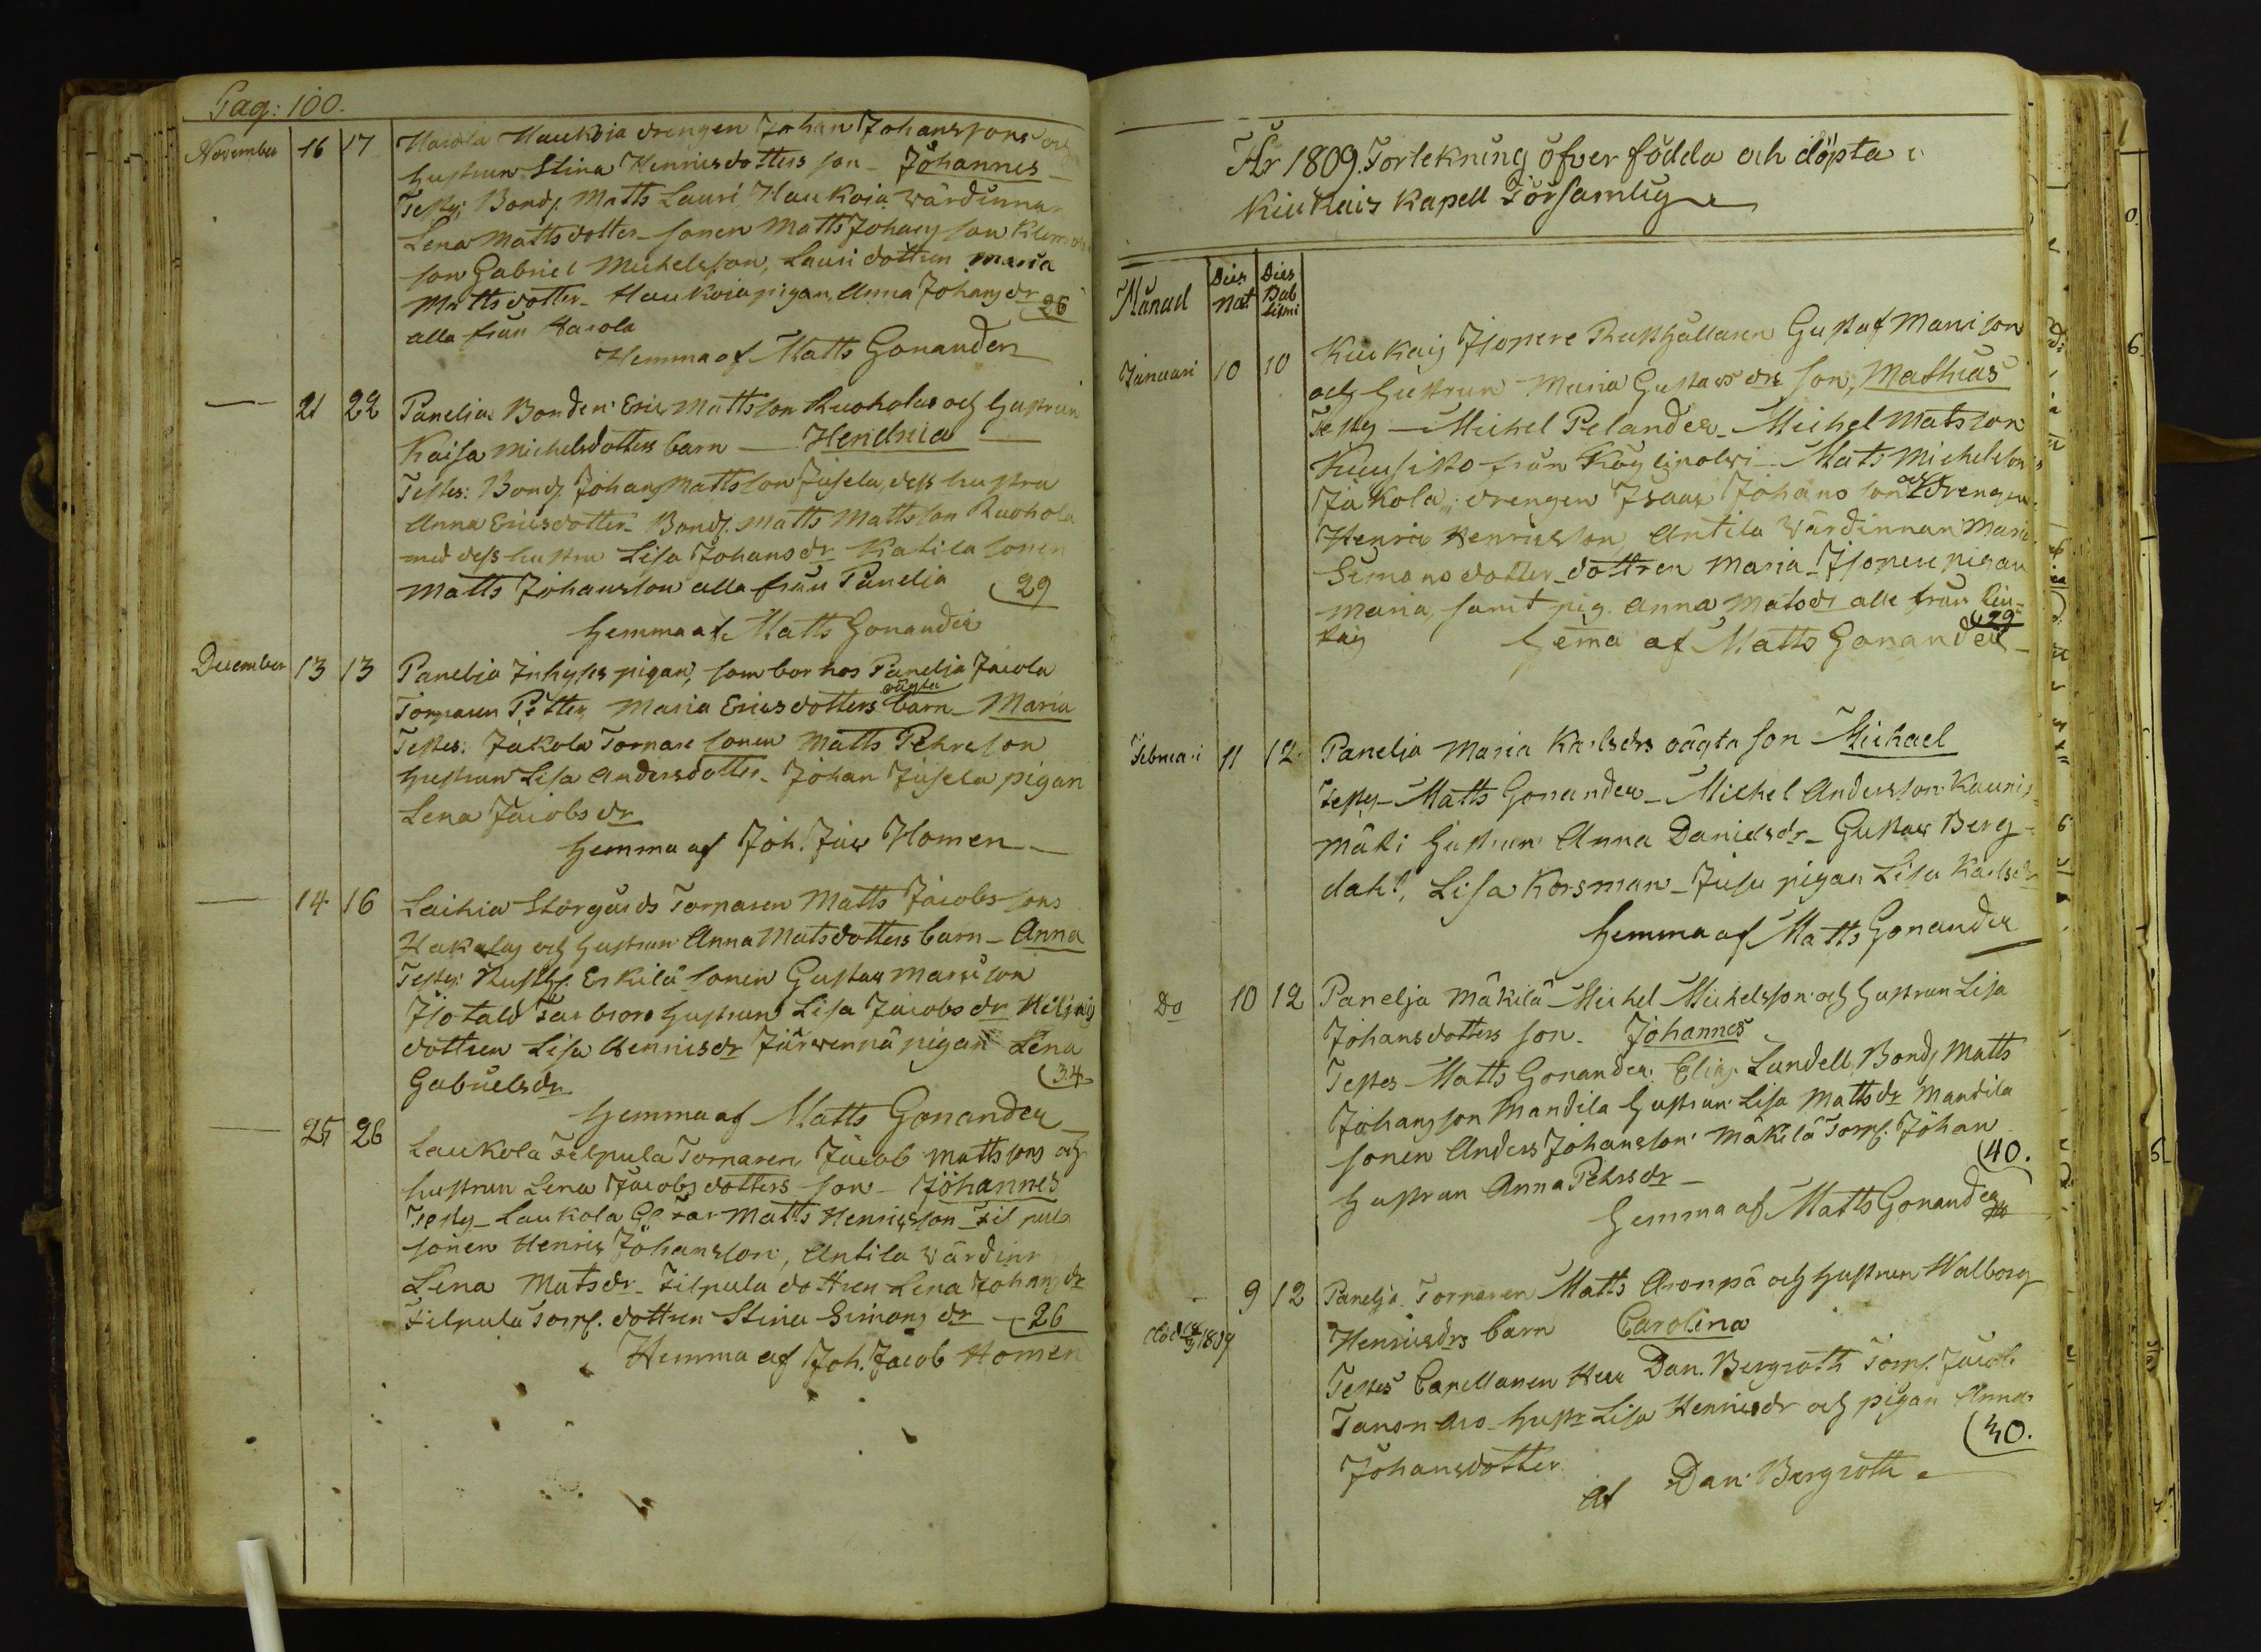 Pag: 100.
November 16 17 Harola Haukoja drengen Johan Johanssons och
hustrun Stina Henricsdotters son - Johannes
Testes: Bond. Matts Lauri Haukoja wärdinnan
Lena Mattsdotter - sonen Matts Johansson
son Gabriel Michelsson, Lauri dottren Maria
Mattsdotter - Haukoja pigan, Anna Johansdr 26
alla från Harola
Hemma af Matts Gonander
21 22 Panelia Bonden Eric Mattsson Ruoholas och hustrun
Kaisa Michelsdotters barn - Hendrica
Testes: Bond. Johan Mattsson Jusela, dess hustru
Anna Ericsdotter - Bond. Matts Mattsson Ruohola
med dess hustru Lisa Johansdr Katila sonen
Matts Johansson alla från Panelia 29
hemma af Matts Gonander
December 13 13 Panelia Inhyses pigan, som bor hos Panelja Jacola
Torparen Petter, Maria Ericsdotters oägta barn - Maria
Testes: Jakola Torpare sonen Matts Pehrsson
hustrun Lisa Andersdotter - Johan Jusela pigan
Lena Jacobsdr
hemma af Joh. Jac Homen
14 16 Laihia Storgårds Torparen Matts Jacobssons
Hakalas och hustrun Anna Matsdotters barn - Anna
Testes: Rusth. Eskilä sonen Gustav Marcisson
Isotalo hustrun Lisa Jacobsdr
dottren Lisa Henricsdr Järwenpä pigan Lena
Gabrielsdr 34
hemma af Matts Gonander
25 26 Laukola Filpula Torparen Jacob Mattssons och
hustrun Lena Jacobsdotters son - Johannes
Testes - Laukola Matts Henricsson - Filpula
sonen Henric Johansson, Antila wärdin
Lena Matsdr - Filpula dottren Lena Johansdr
Filpula Torp. dottren Stina Simonsdr - 26
Hemma af Joh. Jacob Homen
År 1809. Förtekning öfver födda och döpta i
Kiukais Kapell Församling
Månad Dies Nat. Dies Babtismi
Januari 10 10 Kiukais Isopere Rusthållaren Gustaf Marcisson
och hustrun Maria Gustavsdrs son, Mathias
Testes - Michel Pelander - Michel Matsson
Kuusisko från Köylipolvi - Mats Michelsson
Jakola, drengen Isaac Johansson och drengen
Henric Henricsson, Antila Wärdinnan Maria
Simonsdotter - dottren Maria - Isopere pigan
Maria samt pig. Anna Matsdr alle från Kiu-
kais 29
hema af Matts Gonander
Februari 11 12 Panelja Maria Karlsdrs oägta son Michael
Testes - Matts Gonander - Michel Andersson Kaunis-
mäki hustrun Anna Danielsdr - Gustav Berg-
dahl, Lisa Korsman - Jusu pigan Lisa Karlsdr
hemma af Matts Gonander
Do 10 12 Panelja Mäkilä Michel Michelsson och hustrun Lisa
Johansdotters son - Johannes
Testes Matts Gonander. Elias Lundell, Bond. Matts
Johansson Mandila hustrun Lisa Mattsdr Mandila
sonen Anders Johansson Mäkilä Torp. Johan
hustrun Anna Pehrsdr - 40.
hemma af Matts Gonander
9 12 Panelja Torparen Matts Aronpä och hustrun Walborg
död 1809 Henricsdrs barn Carolina
Testes Capellanen Herr Dan. Bergroth Torp. Jacob
Tanon Aro hustr Lisa Henricsdr och pigan Anna
Johansdotter 30.
Af Dan. Bergroth